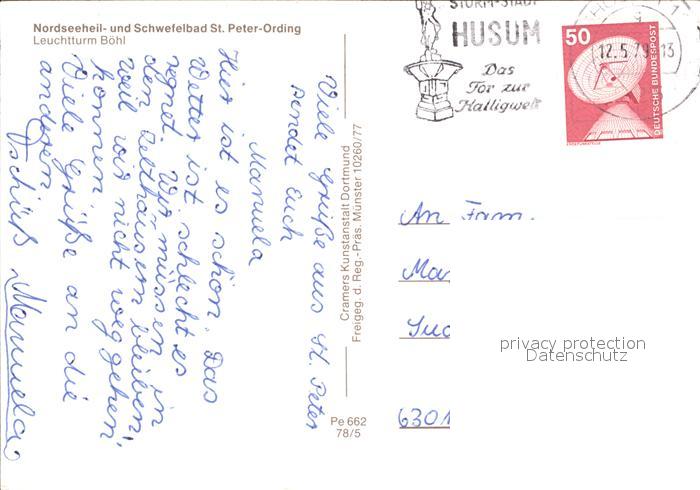 Nordseeheil- und Schwefelbad St. Peter-Ording
Leuchtturm Böhl
Viele Grüße aus St. Peter
sendet Euch
Manuela
Hier ist es schön. Das
Wetter ist schlecht es
regnet. Wir müssen in
den Zelthäusern bleiben,
weil wir nicht weg gehen
können.
Viele Grüße an die
anderen
Tschüß Manuela
Cramers Kunstanstalt Dortmund
Freigeg. d. Reg.-Präs. Münster 10260/77
Pe 662
78/5
STURM-STADT
HUSUM
Das
Tor zur
Halligwelt
12.5.79-13
50
DEUTSCHE BUNDESPOST
An Fam.
6301
privacy protection
Datenschutz